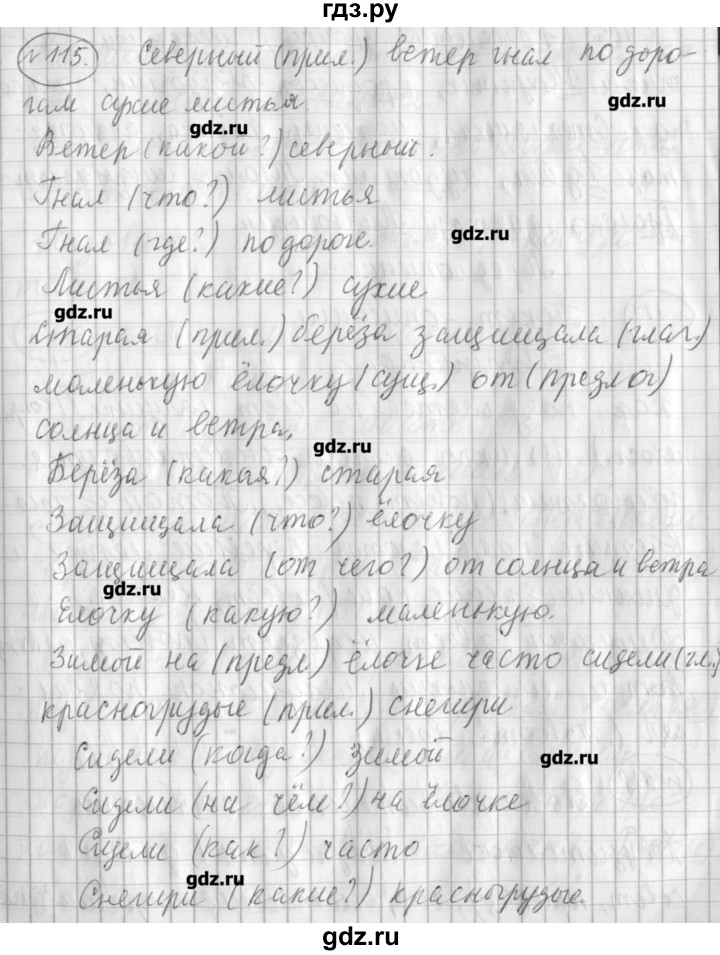 гдз.ру
№115. Северный (прил.) ветер гнал по доро-
гам сухие листья
gdz.ru
gdz.ru
Ветер (какой?) северный.
Гнал (что?) листья
Гнал (где?) по дороге.
gdz.ru
Листья (какие?) сухие
gdz.ru
Старая (прил.) берёза защищала (глаг.)
маленькую ёлочку (сущ.) от (предлог)
солнца и ветра,
gdz.ru
Берёза (какая?) старая
Защищала (что?) ёлочку
Защищала (от чего?) от солнца и ветра
gdz.ru
Ёлочку (какую?) маленькую.
Зимой на (предл) ёлочке часто сидели (гл.)
красногрудые (прил.) снегири
Сидели (когда?) зимой
gdz.ru
Сидели (на чём?) на ёлочке
Сидели (как?) часто
gdz.ru
Снегири (какие?) красногрудые.
gdz.ru